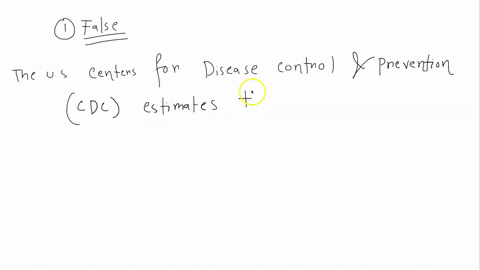 ① False
The us centers for Disease control & prevention
(CDC) estimates t